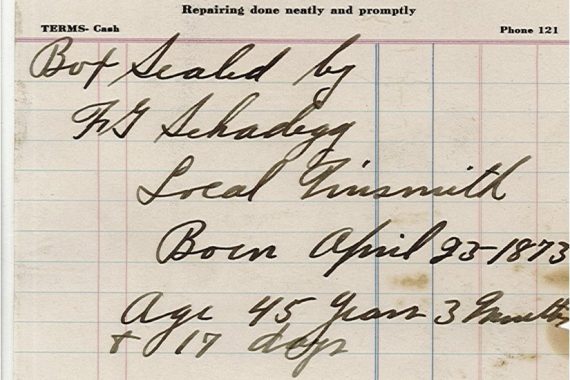 Repairing done neatly and promptly
TERMS- Cash Phone 121
Box Sealed by
F G Schadegg
Local Tinsmith
Born April 23-1873
Age 45 Years 3 Months
+ 17 days